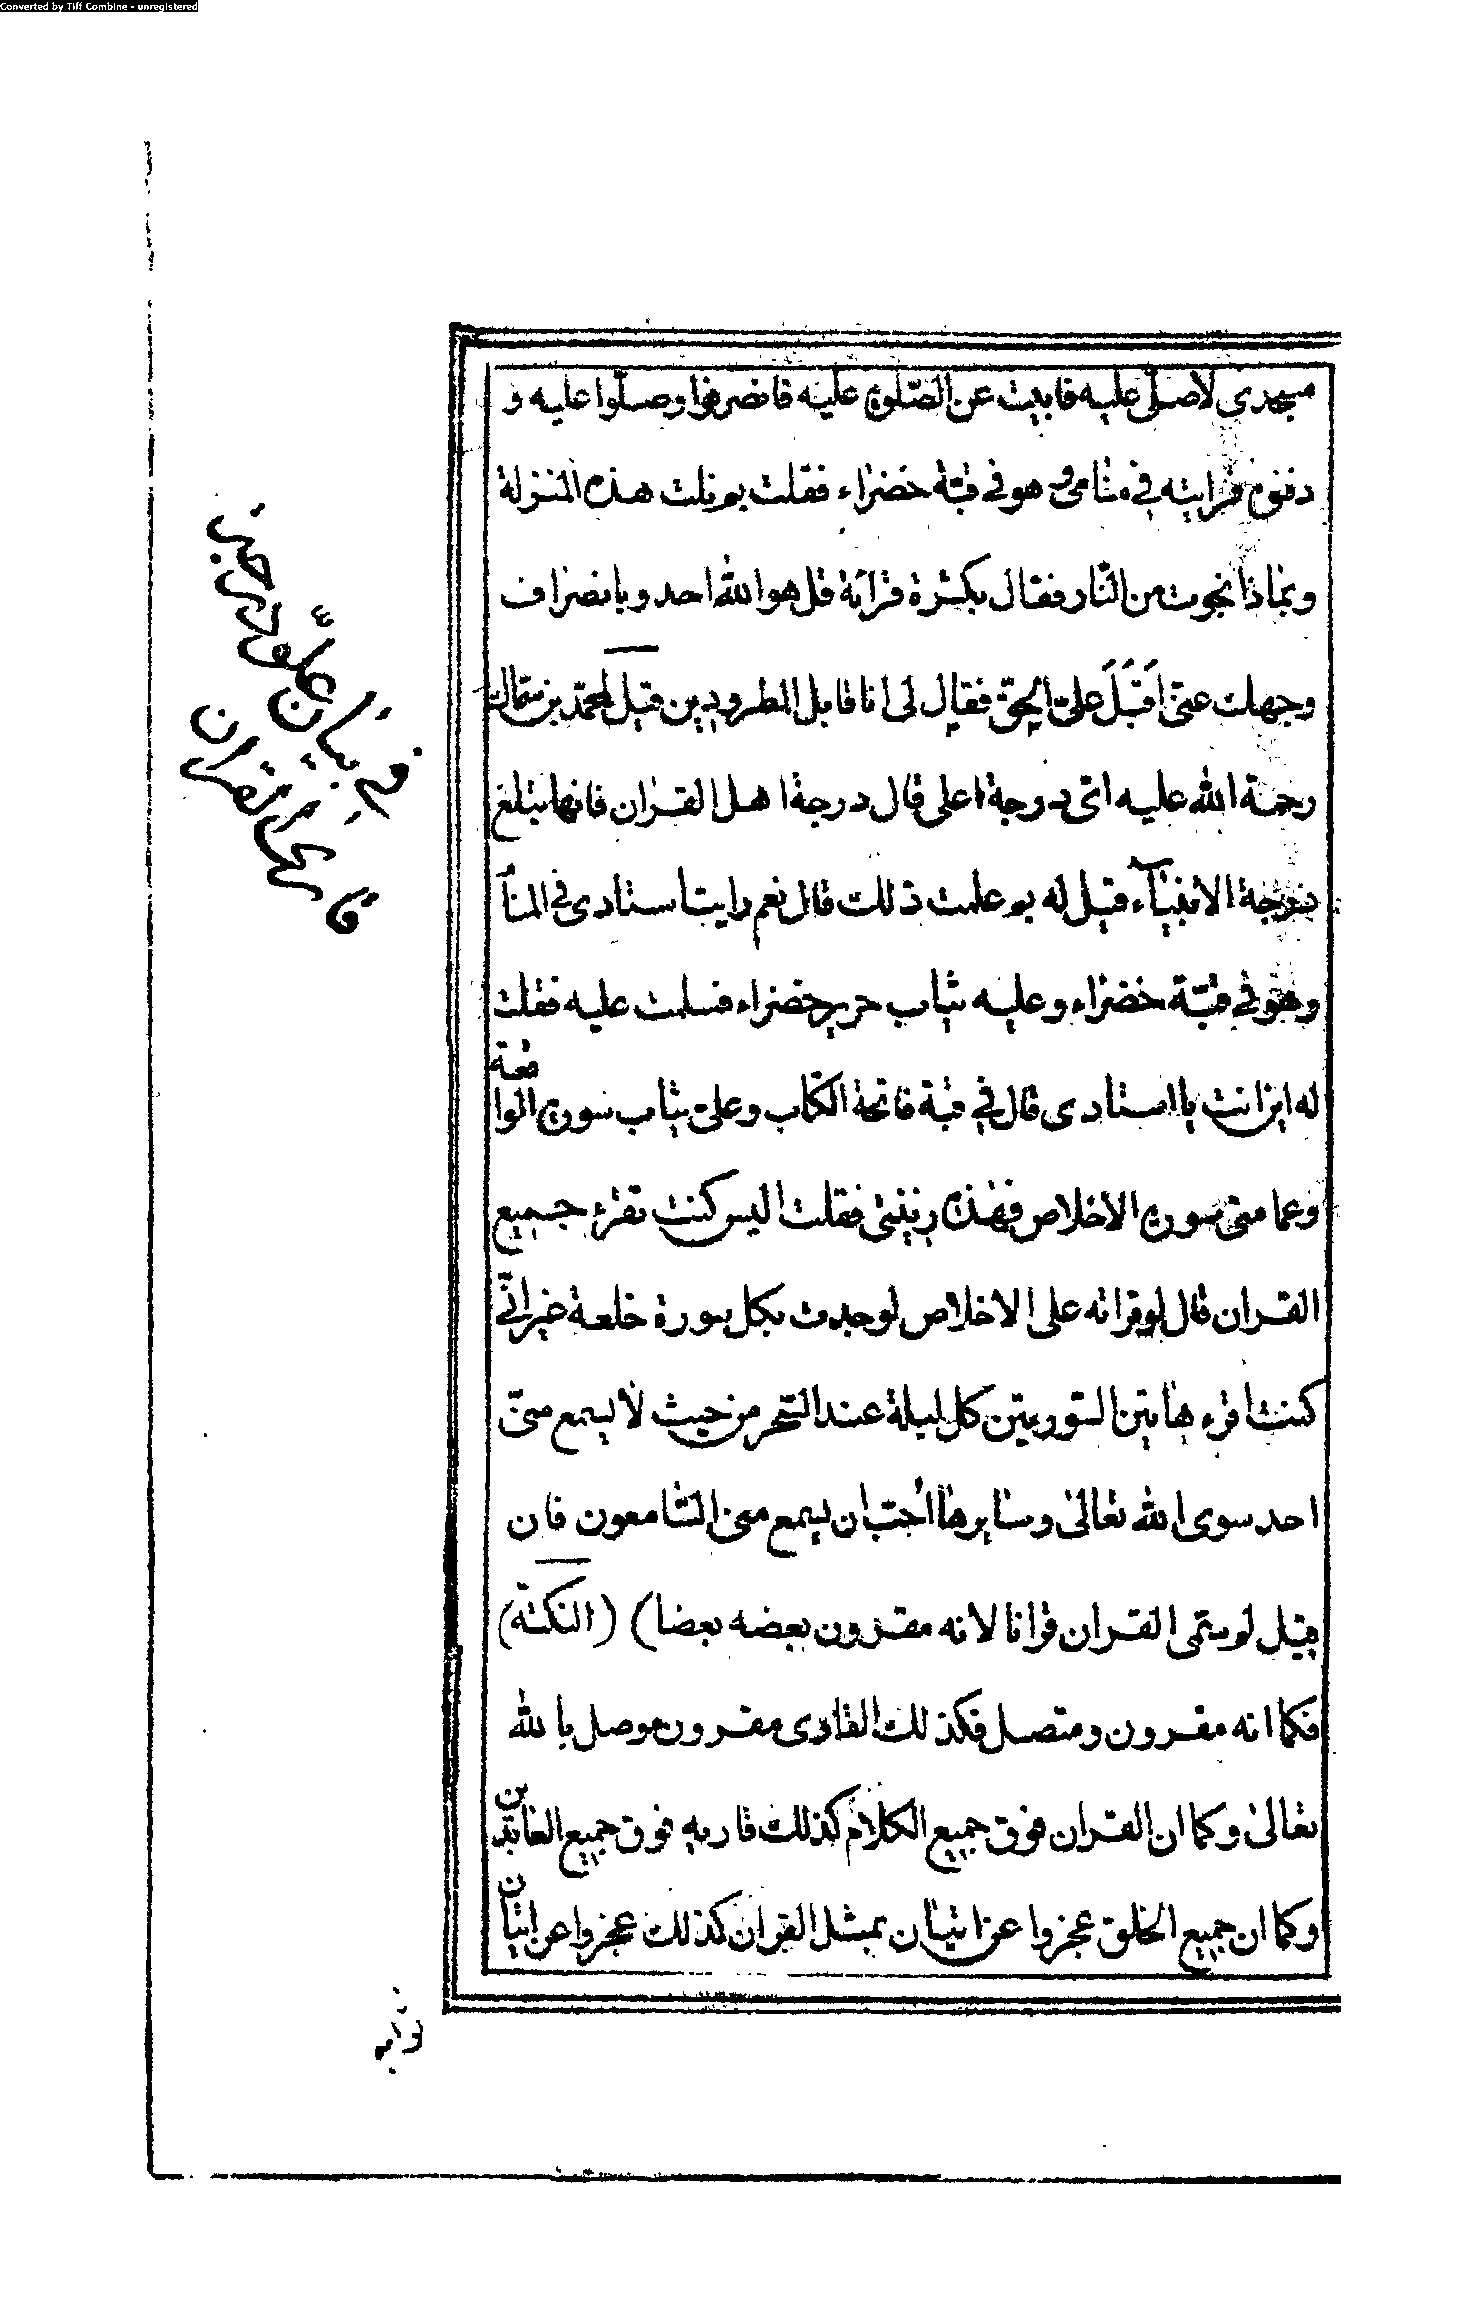 Converted by Tiff Combine - unregistered
مسجدى لاصلّى عليه فابيت عن الصّلوة عليه فانصرفوا وصلّوا عليه و
دفنوه فرايته في منامى وهو في قبّة خضراء فقلت بم نلت هذه المنزلة
وبماذا نجوت من النّار فقال بكثرة قرائة قل هو الله احد وبانصراف
وجهك عنى اقبل علىّ الحقّ فقال لى انا قابل المطرودين قيل لمحمّد بن سماك
رحمة الله عليه اىّ درجة اعلى قال درجة اهل القران فانها تبلغ
درجة الانبياء قيل له بم علمت ذلك قال نعم رايت استادى في المنا
وهو في قبّة خضراء وعليه ثياب حرير خضراء فسلمت عليه فقلت
له اين انت يا استادى قال في قبة فاتحة الكتاب وعلىّ ثياب سورة الواقعة
وعمامتى سورة الاخلاص فهذه زينتى فقلت اليس كنت تقرء جميع
القران قال لو قراته على الاخلاص لوجدت بكل سورة خلعة غير انّى
كنت اقرء هاتين السّورتين كل ليلة عند السّحر من حيث لا يسمع منىّ
احد سوى الله تعالى وسايرها احبّ ان يسمع منى السّامعون فان
قيل لم سمّى القران قرانا لانه مقرون بعضه بعضا) (النكتة)
فكما انه مقرون ومتصل فكذلك القارى مقرون موصل بالله
تعالى وكما ان القران فوق جميع الكلام كذلك قاريه فوق جميع العابدين
وكما ان جميع الخلق عجزوا عن اتيان بمثل القران كذلك عجزوا عن اتيان
في بيان علوّ درجة
قارئ القران
ثوابه